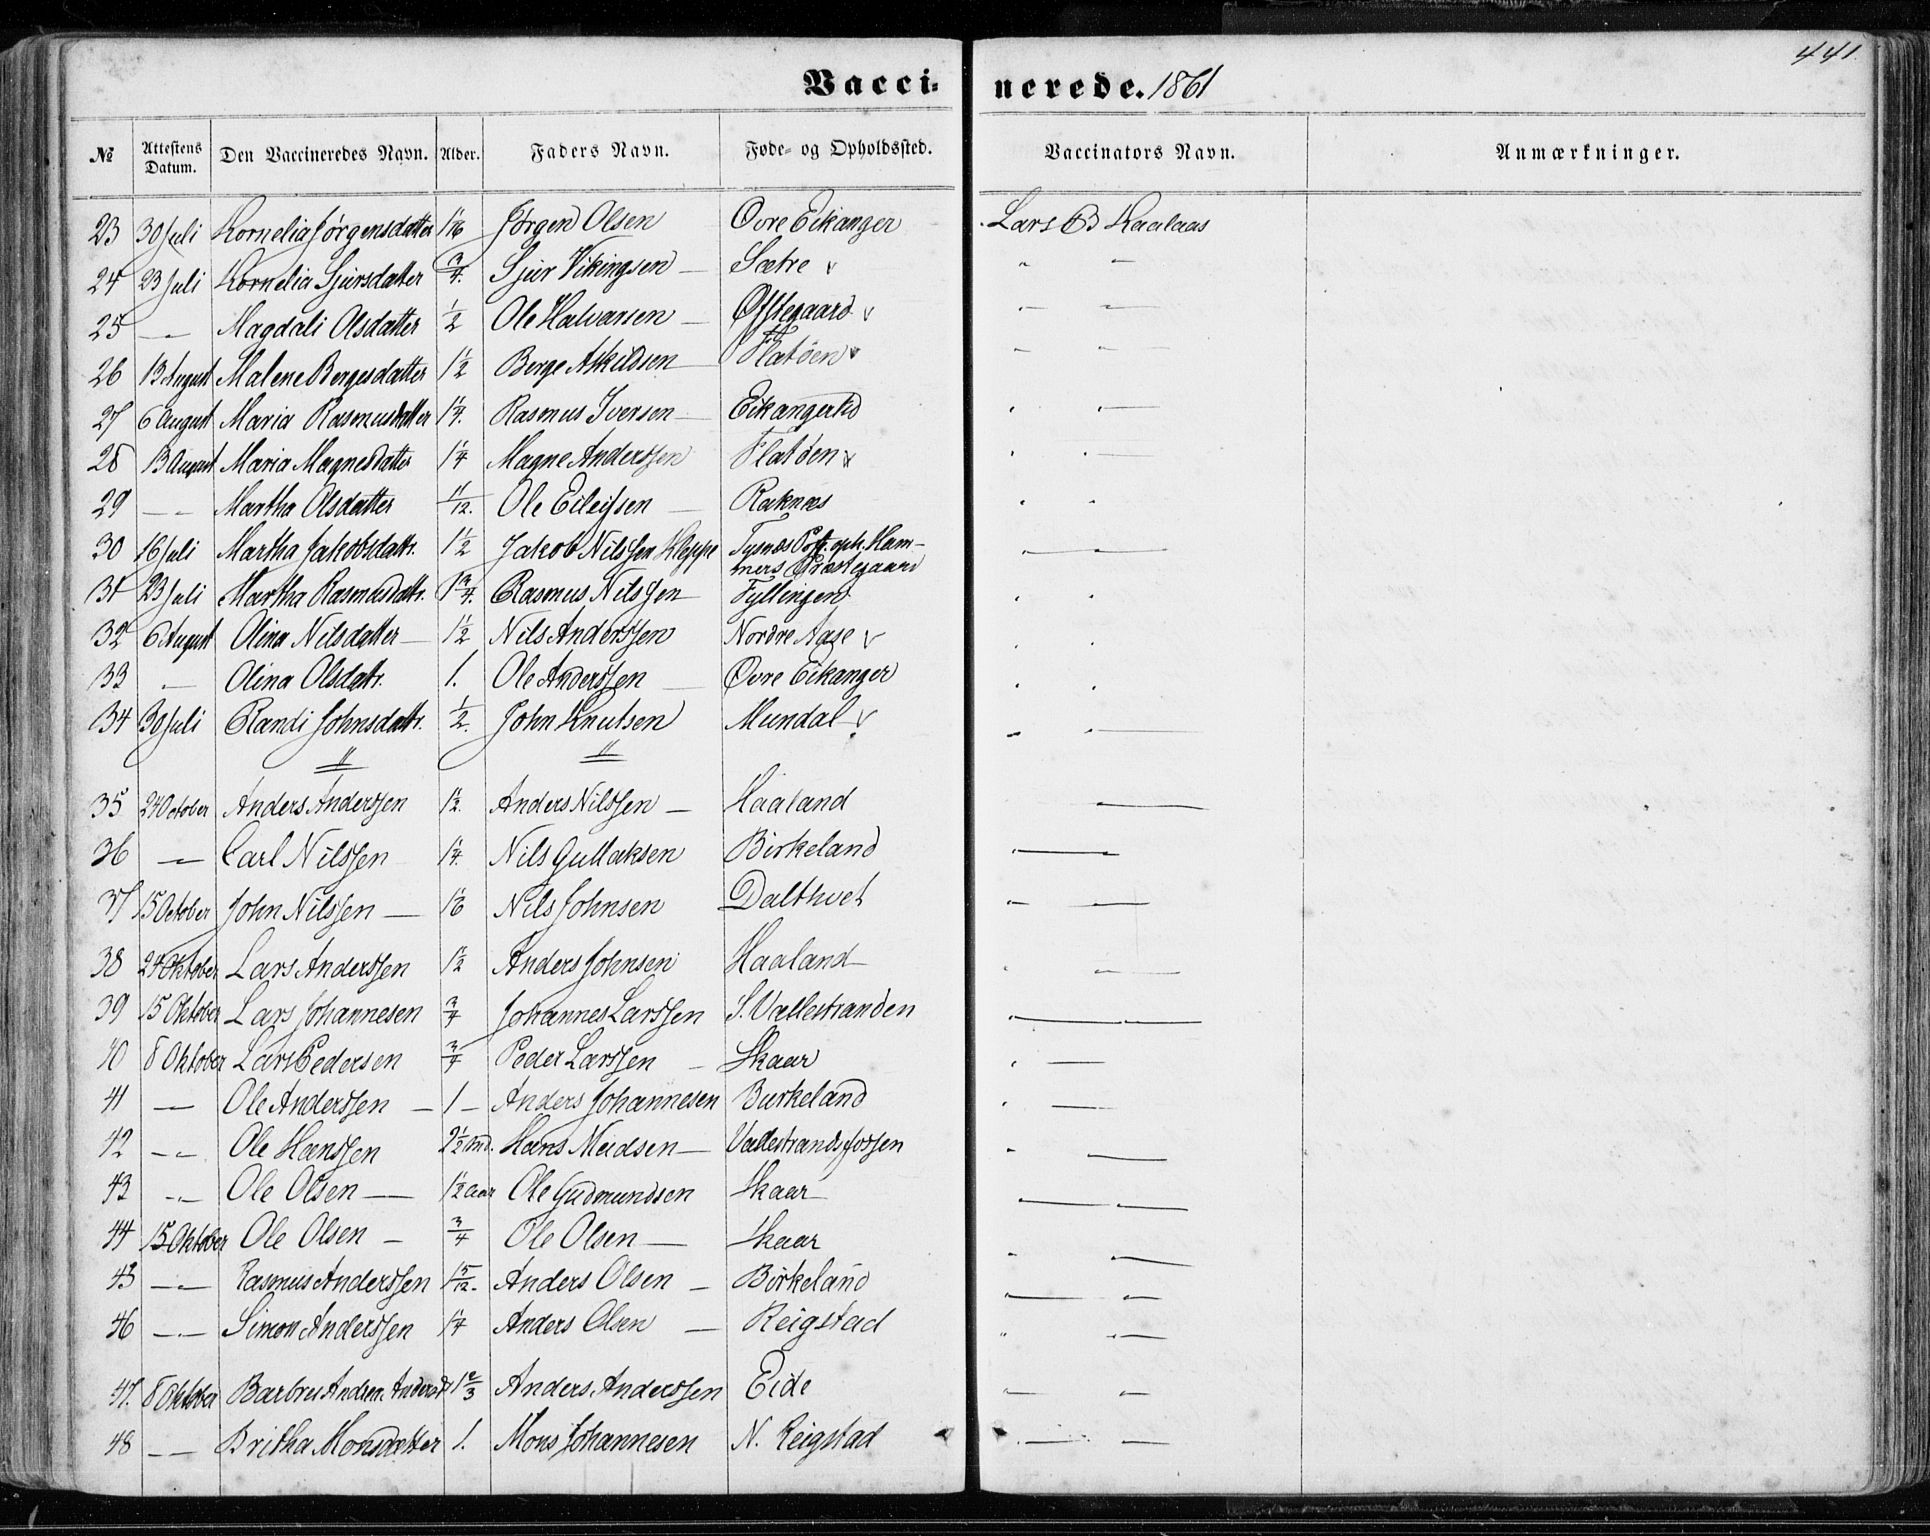 441
Vacci-
nerede. 1861
№ Attestens Datum. Den Vaccineredes Navn. Alder. Faders Navn. Føde- og Opholdssted. Vaccinators Navn. Anmærkninger.
23 30 Juli Kornelia Jørgensdatter 1 1/6 Jørgen Olsen Øvre Eikanger Lars B Haalaas
24 23 Juli Kornelia Sjursdatter 3/4. Sjur Vikingsen — Sætre v " —
25 — " — Magdali Olsdatter 1/2 Ole Halvarsen — Øfstegaard v " —
26 13 August Malene Bergesdatter 1 1/2 Berge Askildsen Flatøen v " —
27 6 August Maria Rasmusdatter 1 1/4. Rasmus Iversen — Eikangertid " —
28 13 August Maria Magnesdatter 1 1/4 Magne Anderssen Flatøen v " —
29 — " — Martha Olsdatter 11/12. Ole Eileifsen — Raknæs " "
30 16 Juli Martha Jakobsdattr. 1 1/2 Jakob Nilssen Kleppe Tysnæs Pgt. oph. Ham-
mers Præstegaard " —
31 23 Juli Martha Rasmusdattr. 1 3/4. Rasmus Nilssen — Fyllingen " "
32 6 August Olina Nilsdatter — 1 1/2 Nils Anderssen Nordre Aase v " "
33 — Olina Olsdatr. 1. Ole Anderssen — Øvre Eikanger " "
34 30 Juli Randi Johnsdattr. 1/2. John Knutsen Mundal v " —
" "
35 24 October Anders Anderssen 1 1/2. Anders Nilssen — Haaland —
36 — " — Carl Nilssen 1 1/4. Nils Gullaksen Birkeland " —
37 15 October John Nilssen — 1 1/6 Nils Johnsen Dalthvet " —
38 24 Oktober Lars Anderssen 1 1/2 Anders Johnsen Haaland — " —
39 15 Oktober Lars Johannesen 3/4 Johannes Larssen S. Vallestranden " —
40 8 Oktober Lars Pedersen 3/4 Peder Larssen — Skaar " —
41 — " — Ole Anderssen — 1 — Anders Johannesen Burkeland " —
42 — " — Ole Hanssen 2 1/2 md. Hans Madsen — Vallestrandsfossen " —
43 — " — Ole Olsen — 1 1/2 aar Ole Gudmundsen Skaar " —
44 15 Oktober Ole Olsen — 3/4 Ole Olsen — Skaar " —
45 — " — Rasmus Anderssen 1 5/12. Anders Olsen — Birkeland " —
46 — " — Simon Anderssen 1 1/4 Anders Olsen — Reigstad " —
47. 8 Oktober Barbru Andrea Andersd. 1 2/3 Anders Anderssen Eide " —
48 — " — Britha Monsdatter 1. Mons Johannesen N. Reigstad " —